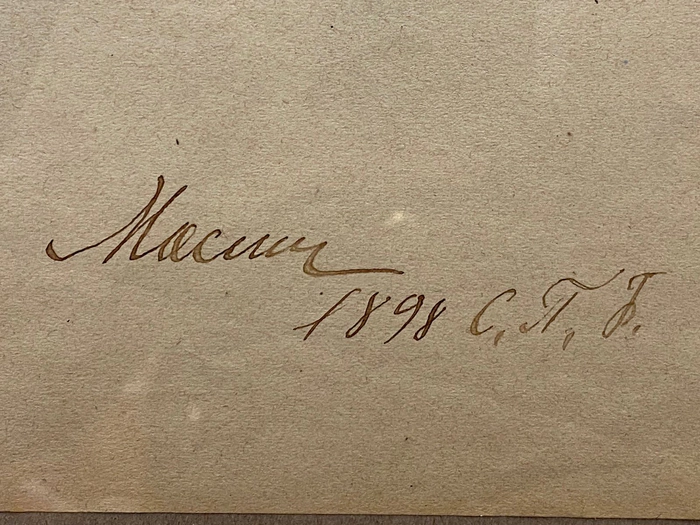 Мосин
1898 С. П. Б.